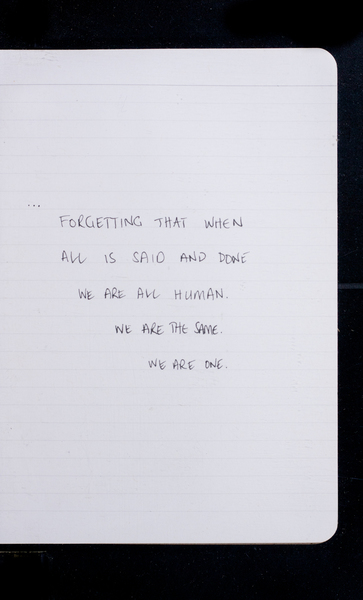 ...
FORGETTING THAT WHEN
ALL IS SAID AND DONE
WE ARE ALL HUMAN.
WE ARE THE SAME.
WE ARE ONE.